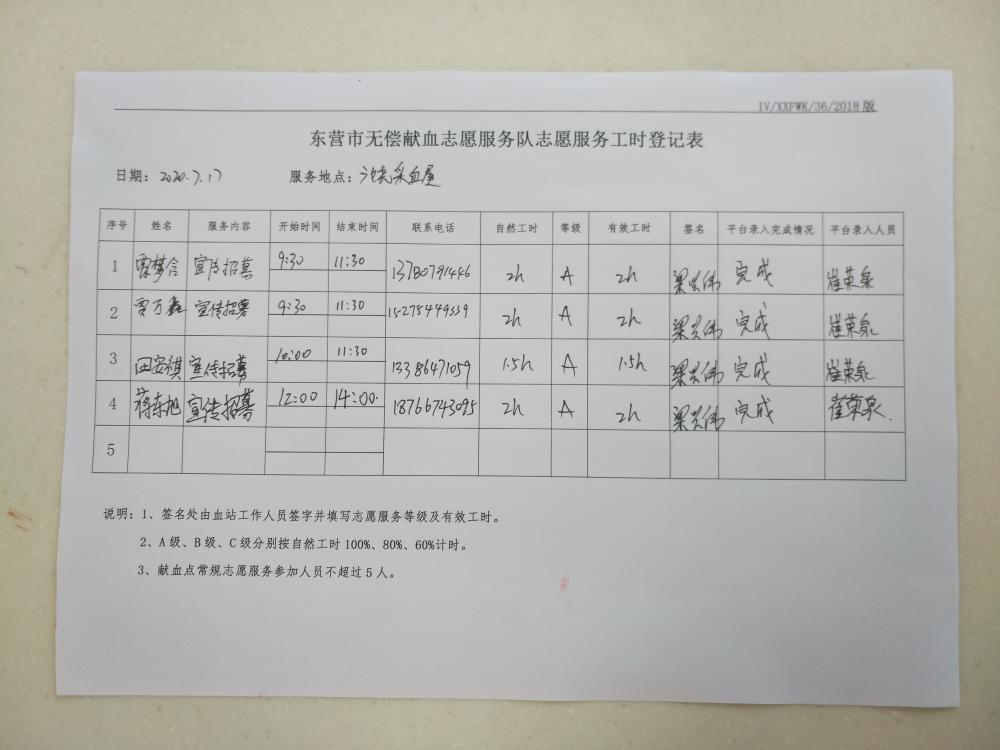 IV/XXFWK/36/2018版
东营市无偿献血志愿服务队志愿服务工时登记表
日期：2020.7.17 服务地点：采血屋
序号 姓名 服务内容 开始时间 结束时间 联系电话 自然工时 等级 有效工时 签名 平台录入完成情况 平台录入人员
1 雷梦合 宣传招募 9:30 11:30 13780791446 2h A 2h 梁兴伟 完成 崔荣泉
2 贾万鑫 宣传招募 9:30 11:30 15275449539 2h A 2h 梁兴伟 完成 崔荣泉
3 田安祺 宣传招募 10:00 11:30 13386471059 1.5h A 1.5h 梁兴伟 完成 崔荣泉
4 蒋东旭 宣传招募 12:00 14:00 18766743095 2h A 2h 梁兴伟 完成 崔荣泉.
5
说明：1、签名处由血站工作人员签字并填写志愿服务等级及有效工时。
2、A级、B级、C级分别按自然工时100%、80%、60%计时。
3、献血点常规志愿服务参加人员不超过5人。